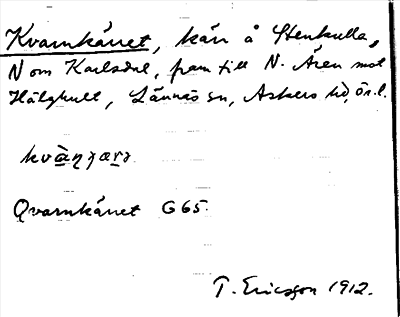 Kvarnkärret, kärr å Stenkulla,
N om Karlsdal, fram till N. Ären mot
Hälghult, Lännäs sn, Askers hd, Ör. l.
Qvarnkärret G65.
T. Ericsson 1912.